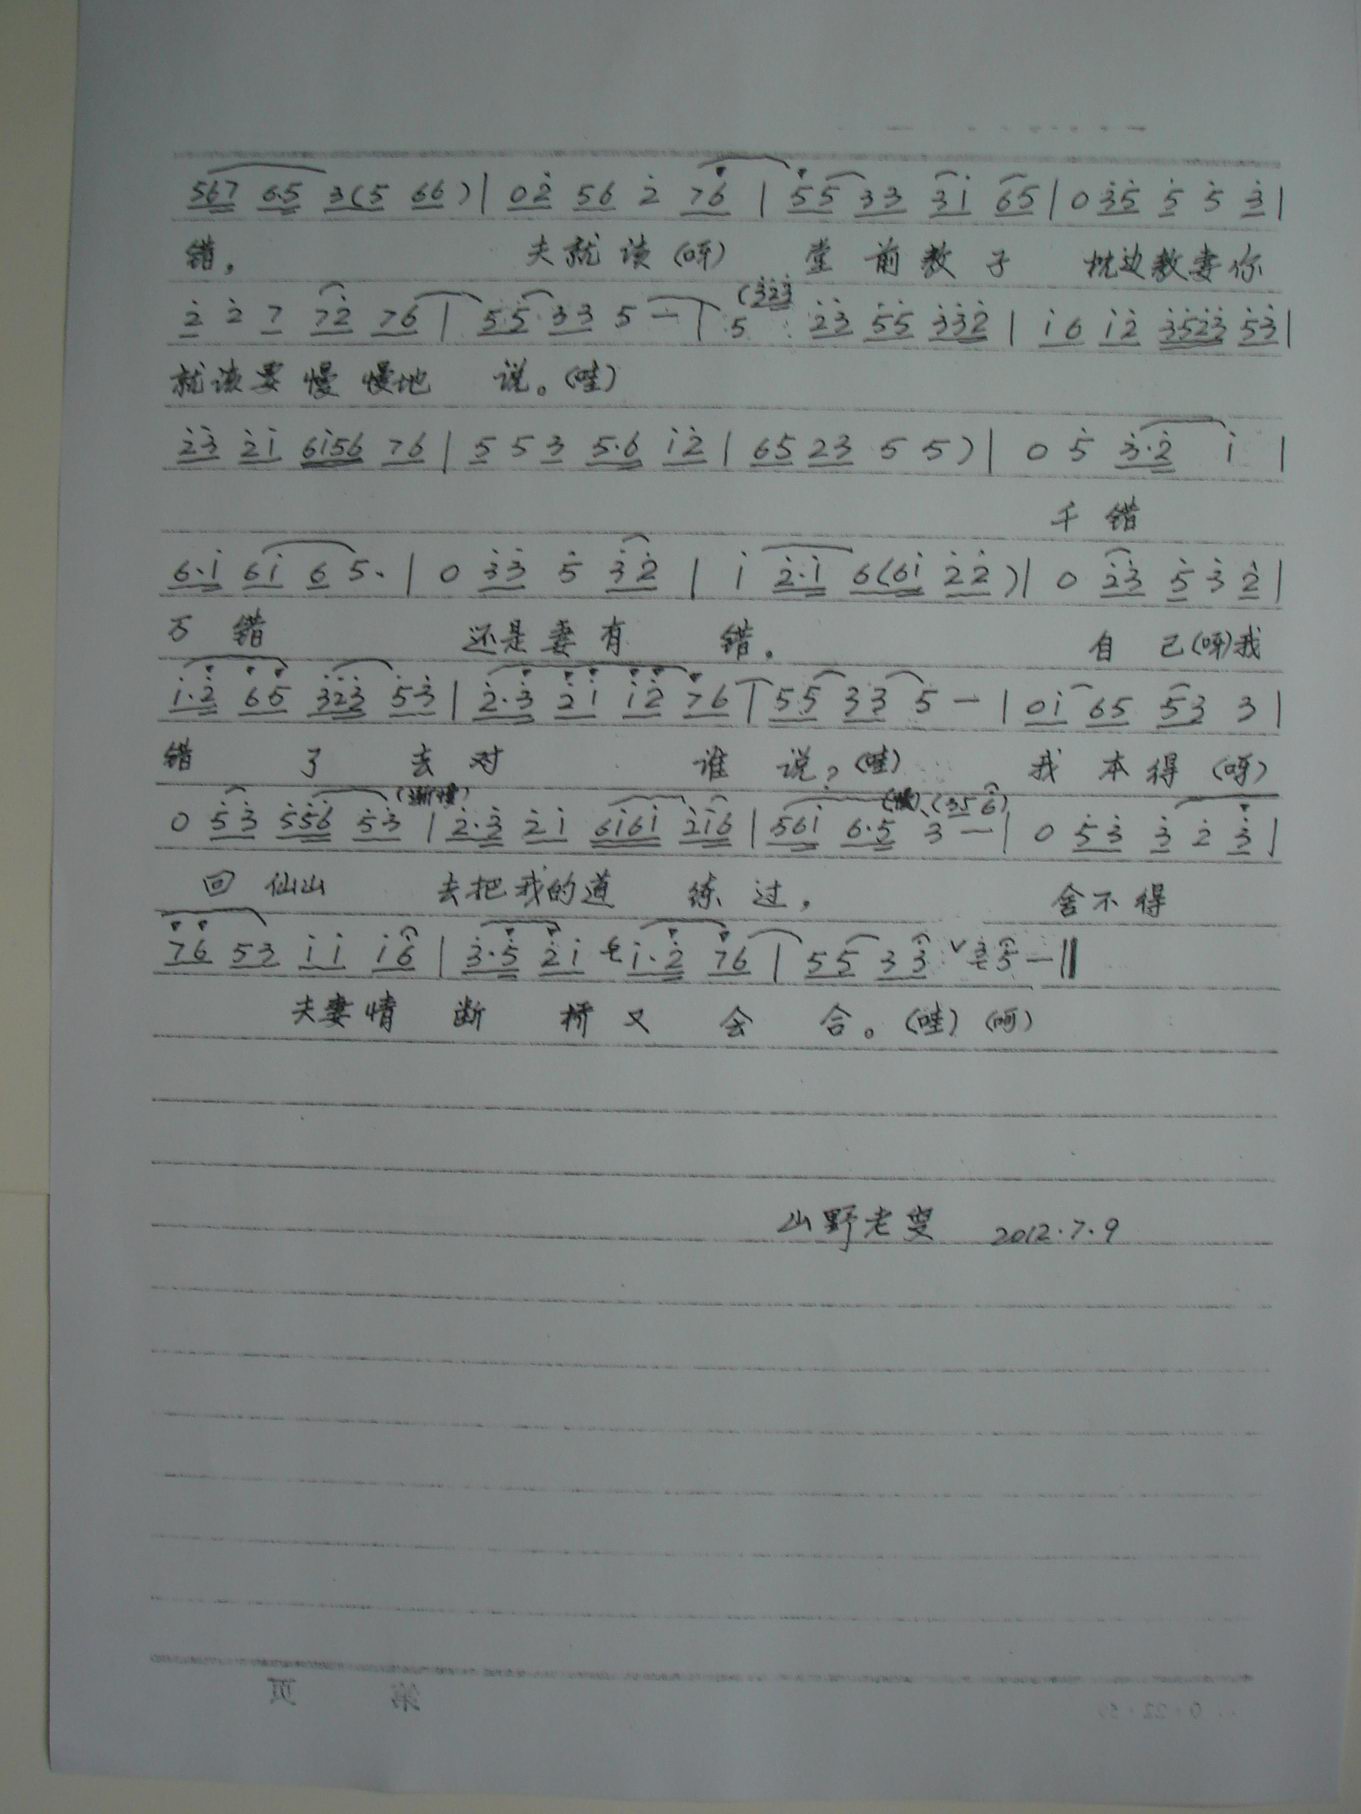 567 6·5 3(5 66) | 02̇ 56 2̇ 76 | 5̇5 33 3̇i̇ 65 | 0 3̇5̇ 5̇ 5̇ 3̇ |
错, 夫就该(呀) 堂前教子 枕边教妻你
2̇ 2̇ 7 72̇ 76 | 5·5 33 5 — | 5 (3̇2̇3̇ 2̇3̇ 5̇5̇ 3̇3̇2̇ | i̇ 6 i̇2̇ 3̇5̇2̇3̇ 5̇3̇ |
就该要慢慢地 说。(哇)
2̇3̇ 2̇i̇ 6i̇56 76 | 5 5 3 5·6 i̇2̇ | 65 23 5 5) | 0 5̇ 3̇·2̇ i̇ |
千错
6·i̇ 6i̇ 6 5· | 0 3̇3̇ 5̇ 3̇2̇ | i̇ 2̇·i̇ 6(6i̇ 2̇2̇) | 0 2̇3̇ 5̇ 3̇ 2̇ |
万错 还是妻有 错。 自己(呀)我
i̇·2̇ 65 3̇2̇3̇ 5̇3̇ | 2̇·3̇ 2̇i̇ i̇2̇ 76 | 55 33 5 — | 0i̇ 65 53 3 |
错 了 去对 谁 说?(哇) 我本得(呀)
(渐慢) (慢) (35 6)
0 5̇3̇ 5̇5̇6̇ 5̇3̇ | 2̇·3̇ 2̇i̇ 6i̇6i̇ 2̇i̇6 | 56i̇ 6·5 3 — | 0 5̇3̇ 3̇ 2̇ 3̇ |
回 仙山 去把我的道 练 过, 舍不得
76 53 i̇i̇ i̇6 | 3̇·5̇ 2̇i̇ i̇·2̇ 76 | 55 33 5 — ‖
夫妻情 断 桥又 会 合。(哇)(呵)
山野老叟 2012.7.9
第 页